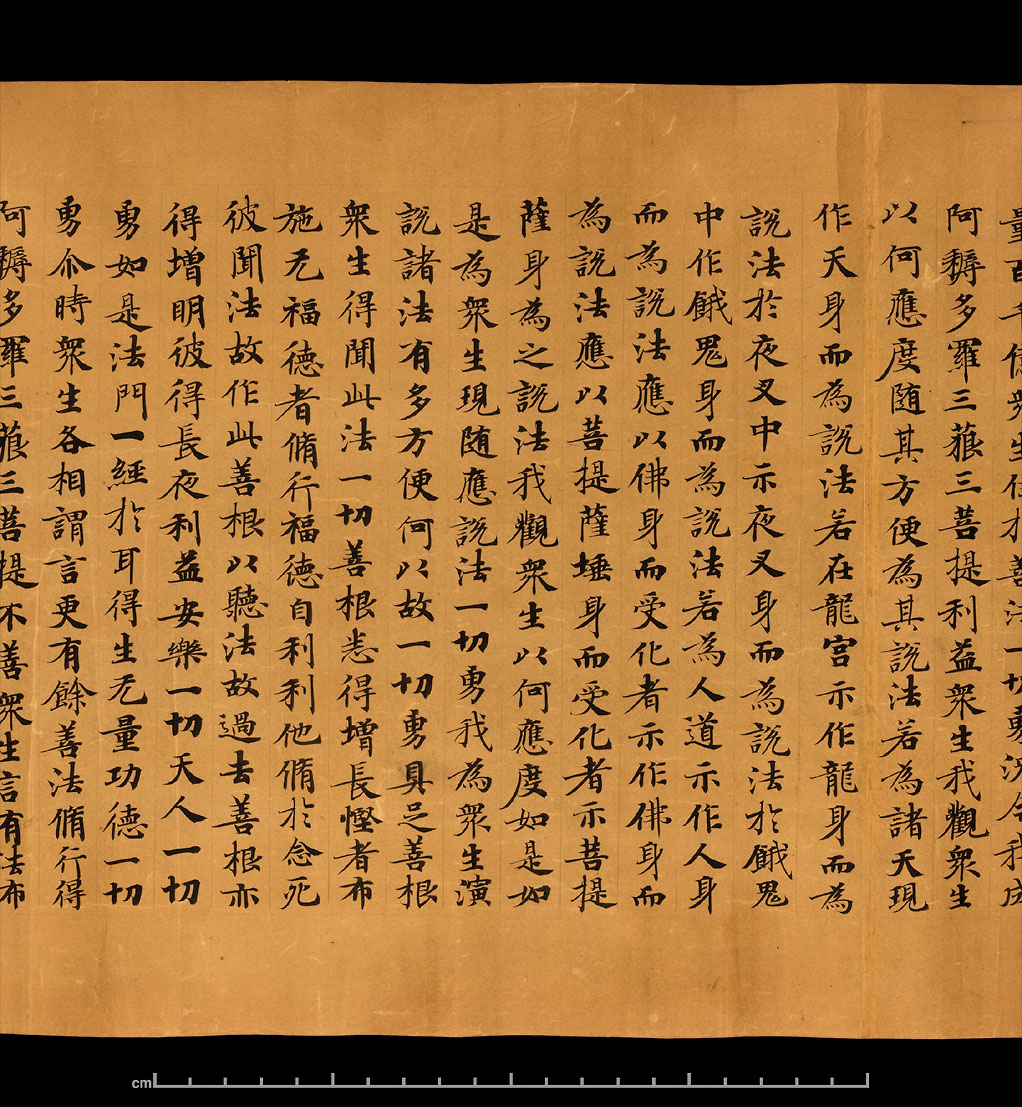 量百千億衆生住於善法一切勇況今我成
阿耨多羅三藐三菩提利益衆生我觀衆生
以何應度随其方便為其説法若為諸天現
作天身而為説法若在龍宮示作龍身而為
説法於夜叉中示夜叉身而為説法於餓鬼
中作餓鬼身而為説法若為人道示作人身
而為説法應以佛身而受化者示作佛身而
為説法應以菩提薩埵身而受化者示菩提
薩身為之説法我觀衆生以何應度如是如
是為衆生現随應説法一切勇我為衆生演
説諸法有多方便何以故一切勇具足善根
衆生得聞此法一切善根悉得增長慳者布
施无福德者脩行福德自利利他脩於念死
彼聞法故作此善根以聽法故過去善根亦
得增明彼得長夜利益安樂一切天人一切
勇如是法門一經於耳得生无量功德一切
勇尒時衆生各相謂言更有餘善法脩行得
阿耨多羅三藐三菩提不善衆生言有法布